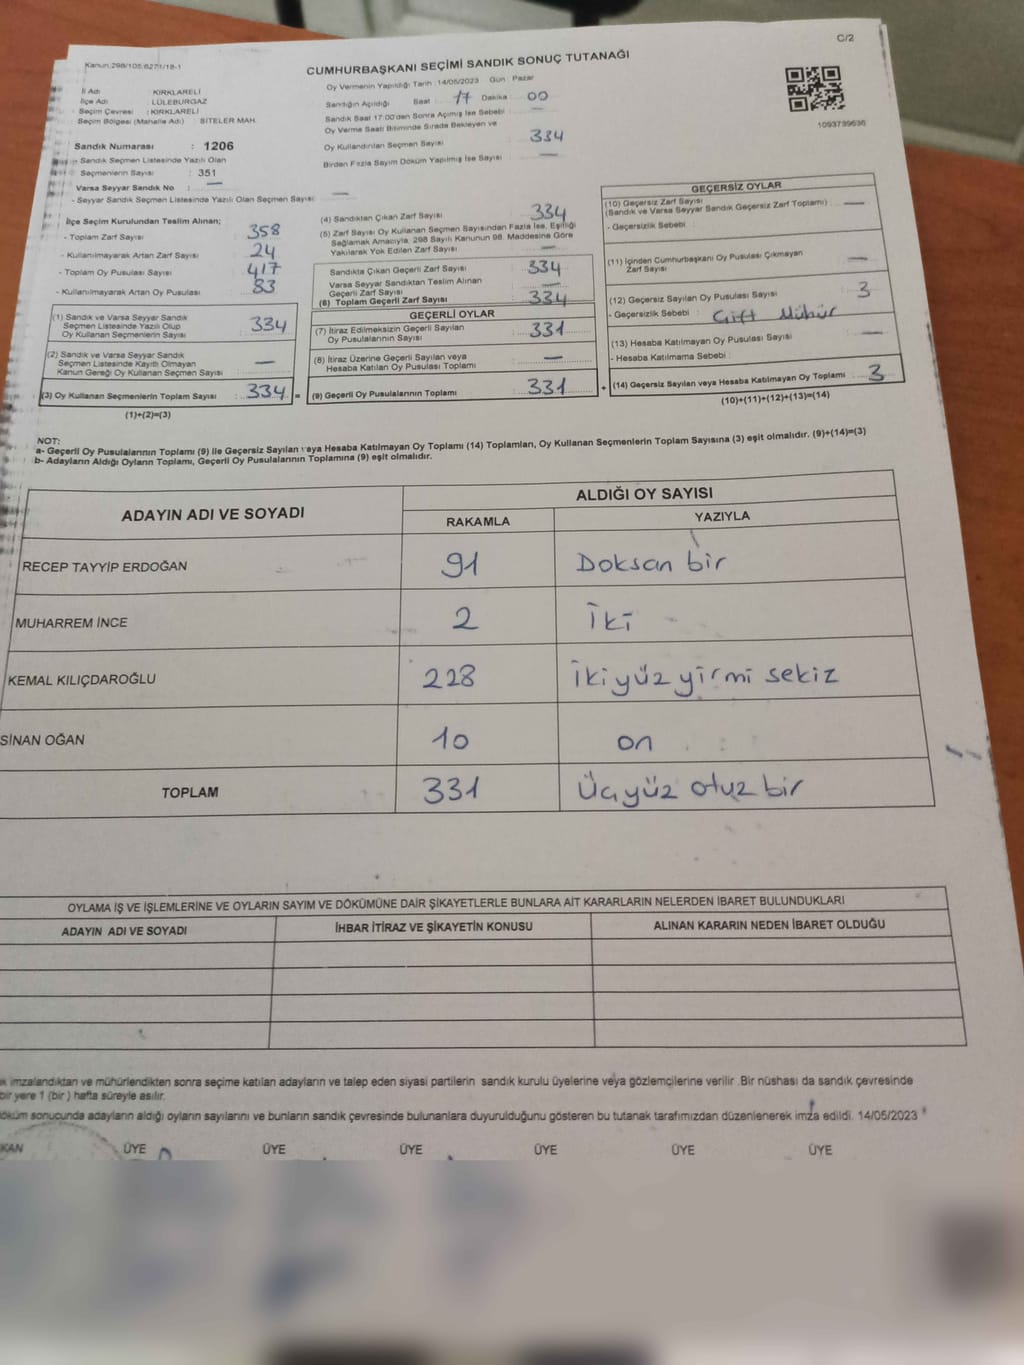 C/2
Kanun:298/105/6271/18-1
CUMHURBAŞKANI SEÇİMİ SANDIK SONUÇ TUTANAĞI
İl Adı : KIRKLARELİ
İlçe Adı : LÜLEBURGAZ
Seçim Çevresi : KIRKLARELİ
Seçim Bölgesi (Mahalle Adı) : SİTELER MAH.
Sandık Numarası : 1206
- Sandık Seçmen Listesinde Yazılı Olan
Seçmenlerin Sayısı : 351
Varsa Seyyar Sandık No : —
- Seyyar Sandık Seçmen Listesinde Yazılı Olan Seçmen Sayısı : —
Oy Vermenin Yapıldığı Tarih : 14/05/2023 Gün : Pazar
Sandığın Açıldığı Saat : 17 Dakika : 00
Sandık Saat 17:00'den Sonra Açılmış İse Sebebi : —
Oy Verme Saati Bitiminde Sırada Bekleyen ve
Oy Kullandırılan Seçmen Sayısı : 334
Birden Fazla Sayım Döküm Yapılmış İse Sayısı : —
1093739636
İlçe Seçim Kurulundan Teslim Alınan;
- Toplam Zarf Sayısı : 358
- Kullanılmayarak Artan Zarf Sayısı : 24
- Toplam Oy Pusulası Sayısı : 417
- Kullanılmayarak Artan Oy Pusulası : 83
(1) Sandık ve Varsa Seyyar Sandık
Seçmen Listesinde Yazılı Olup
Oy Kullanan Seçmenlerin Sayısı : 334
(2) Sandık ve Varsa Seyyar Sandık
Seçmen Listesinde Kayıtlı Olmayan
Kanun Gereği Oy Kullanan Seçmen Sayısı : —
(3) Oy Kullanan Seçmenlerin Toplam Sayısı : 334 =
(1)+(2)=(3)
(4) Sandıktan Çıkan Zarf Sayısı : 334
(5) Zarf Sayısı Oy Kullanan Seçmen Sayısından Fazla İse, Eşitliği
Sağlamak Amacıyla, 298 Sayılı Kanunun 98. Maddesine Göre
Yakılarak Yok Edilen Zarf Sayısı : —
Sandıkta Çıkan Geçerli Zarf Sayısı : 334
Varsa Seyyar Sandıktan Teslim Alınan
Geçerli Zarf Sayısı : —
(6) Toplam Geçerli Zarf Sayısı : 334
GEÇERLİ OYLAR
(7) İtiraz Edilmeksizin Geçerli Sayılan
Oy Pusulalarının Sayısı : 331
(8) İtiraz Üzerine Geçerli Sayılan veya
Hesaba Katılan Oy Pusulası Toplamı : —
(9) Geçerli Oy Pusulalarının Toplamı : 331 +
GEÇERSİZ OYLAR
(10) Geçersiz Zarf Sayısı
(Sandık ve Varsa Seyyar Sandık Geçersiz Zarf Toplamı) : —
- Geçersizlik Sebebi :
(11) İçinden Cumhurbaşkanı Oy Pusulası Çıkmayan
Zarf Sayısı : —
(12) Geçersiz Sayılan Oy Pusulası Sayısı : 3
- Geçersizlik Sebebi : Çift Mühür
(13) Hesaba Katılmayan Oy Pusulası Sayısı : —
- Hesaba Katılmama Sebebi :
(14) Geçersiz Sayılan veya Hesaba Katılmayan Oy Toplamı : 3
(10)+(11)+(12)+(13)=(14)
NOT:
a- Geçerli Oy Pusulalarının Toplamı (9) ile Geçersiz Sayılan veya Hesaba Katılmayan Oy Toplamı (14) Toplamları, Oy Kullanan Seçmenlerin Toplam Sayısına (3) eşit olmalıdır. (9)+(14)=(3)
b- Adayların Aldığı Oyların Toplamı, Geçerli Oy Pusulalarının Toplamına (9) eşit olmalıdır.
ADAYIN ADI VE SOYADI
ALDIĞI OY SAYISI
RAKAMLA YAZIYLA
RECEP TAYYİP ERDOĞAN 91 Doksan bir
MUHARREM İNCE 2 İki
KEMAL KILIÇDAROĞLU 228 İkiyüz yirmi sekiz
SİNAN OĞAN 10 on
TOPLAM 331 Üçyüz otuz bir
OYLAMA İŞ VE İŞLEMLERİNE VE OYLARIN SAYIM VE DÖKÜMÜNE DAİR ŞİKAYETLERLE BUNLARA AİT KARARLARIN NELERDEN İBARET BULUNDUKLARI
ADAYIN ADI VE SOYADI İHBAR İTİRAZ VE ŞİKAYETİN KONUSU ALINAN KARARIN NEDEN İBARET OLDUĞU
imzalandıktan ve mühürlendikten sonra seçime katılan adayların ve talep eden siyasi partilerin sandık kurulu üyelerine veya gözlemcilerine verilir. Bir nüshası da sandık çevresinde
bir yere 1 (bir) hafta süreyle asılır.
döküm sonucunda adayların aldığı oyların sayılarını ve bunların sandık çevresinde bulunanlara duyurulduğunu gösteren bu tutanak tarafımızdan düzenlenerek imza edildi. 14/05/2023
KAN ÜYE ÜYE ÜYE ÜYE ÜYE ÜYE